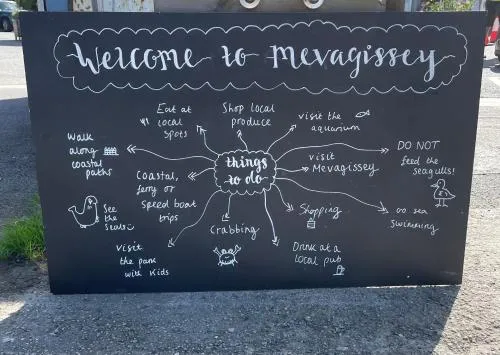 Welcome to Mevagissey
Eat at
local
spots
Shop local
produce
visit the
aquarium
Walk
along
coastal
paths
things
to do
visit
Mevagissey
DO NOT
feed the
seagulls!
Coastal,
ferry or
speed boat
trips
See
the
Seals
Crabbing
Shopping
Go sea
Swimming
Visit
the park
with kids
Drink at a
local pub